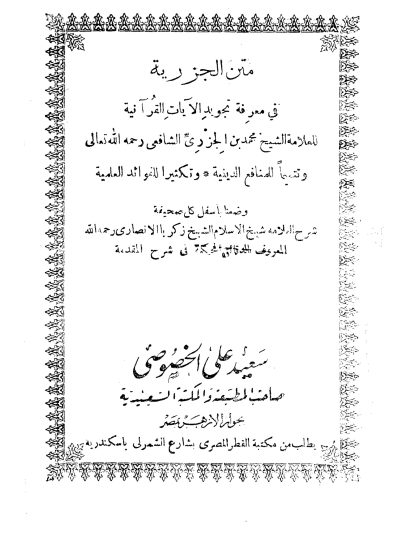 متن الجزرية
في معرفة تجويد الآيات القرآنية
للعلامة الشيخ محمد بن الجزري الشافعى رحمه الله تعالى
وتتميماً للمنافع الدينية * وتكثيرا للفوائد العلمية
وضعنا بأسفل كل صحيفة
شرح العلامة شيخ الاسلام الشيخ زكريا الانصارى رحمه الله
المعروف بالدقائق المحكمة فى شرح المقدمة
سعيد على الخصوصى
صاحب المطبعة والمكتبة السعيدية
بجوار الازهر بمصر
يطلب من مكتبة القطر المصرى بشارع الشمرلى باسكندرية